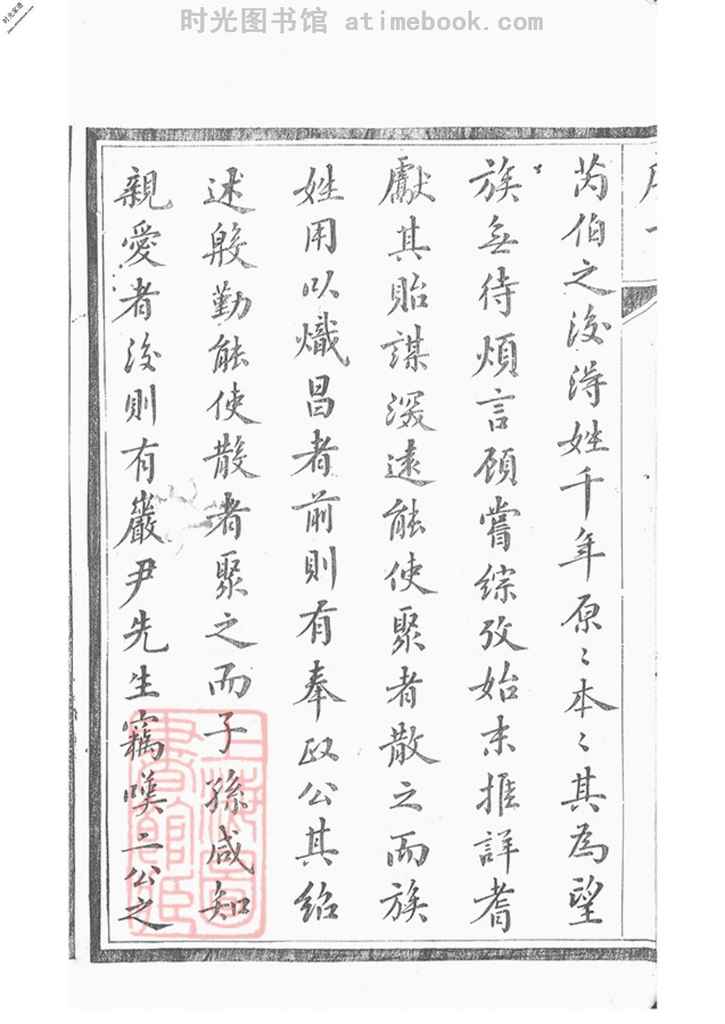 时光图书馆 atimebook.com
芮伯之後得姓千年原〻本〻其為望
族無待煩言顧嘗綜攷始末推詳耆
獻其貽謀深遠能使聚者散之而族
姓用以熾昌者前則有奉政公其紹
述殷勤能使散者聚之而子孫咸知
親愛者後則有巖尹先生竊嘆二公之